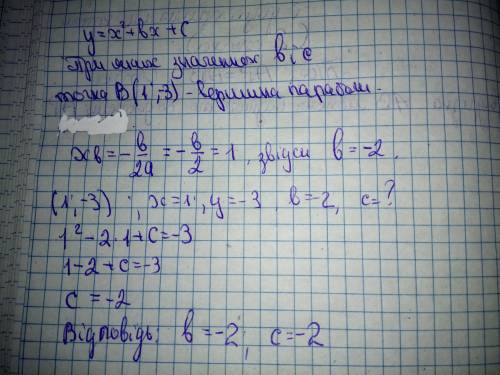 y=x²+вx+c
При яких значеннях в і с
точка В(1;-3) - вершина параболи.
xв = -в/2a = -в/2 = 1, звідси в=-2.
(1;-3) ; x=1, y=-3 в=-2, c=?
1²-2·1+c=-3
1-2+c=-3
c = -2
Відповідь: в=-2; c=-2